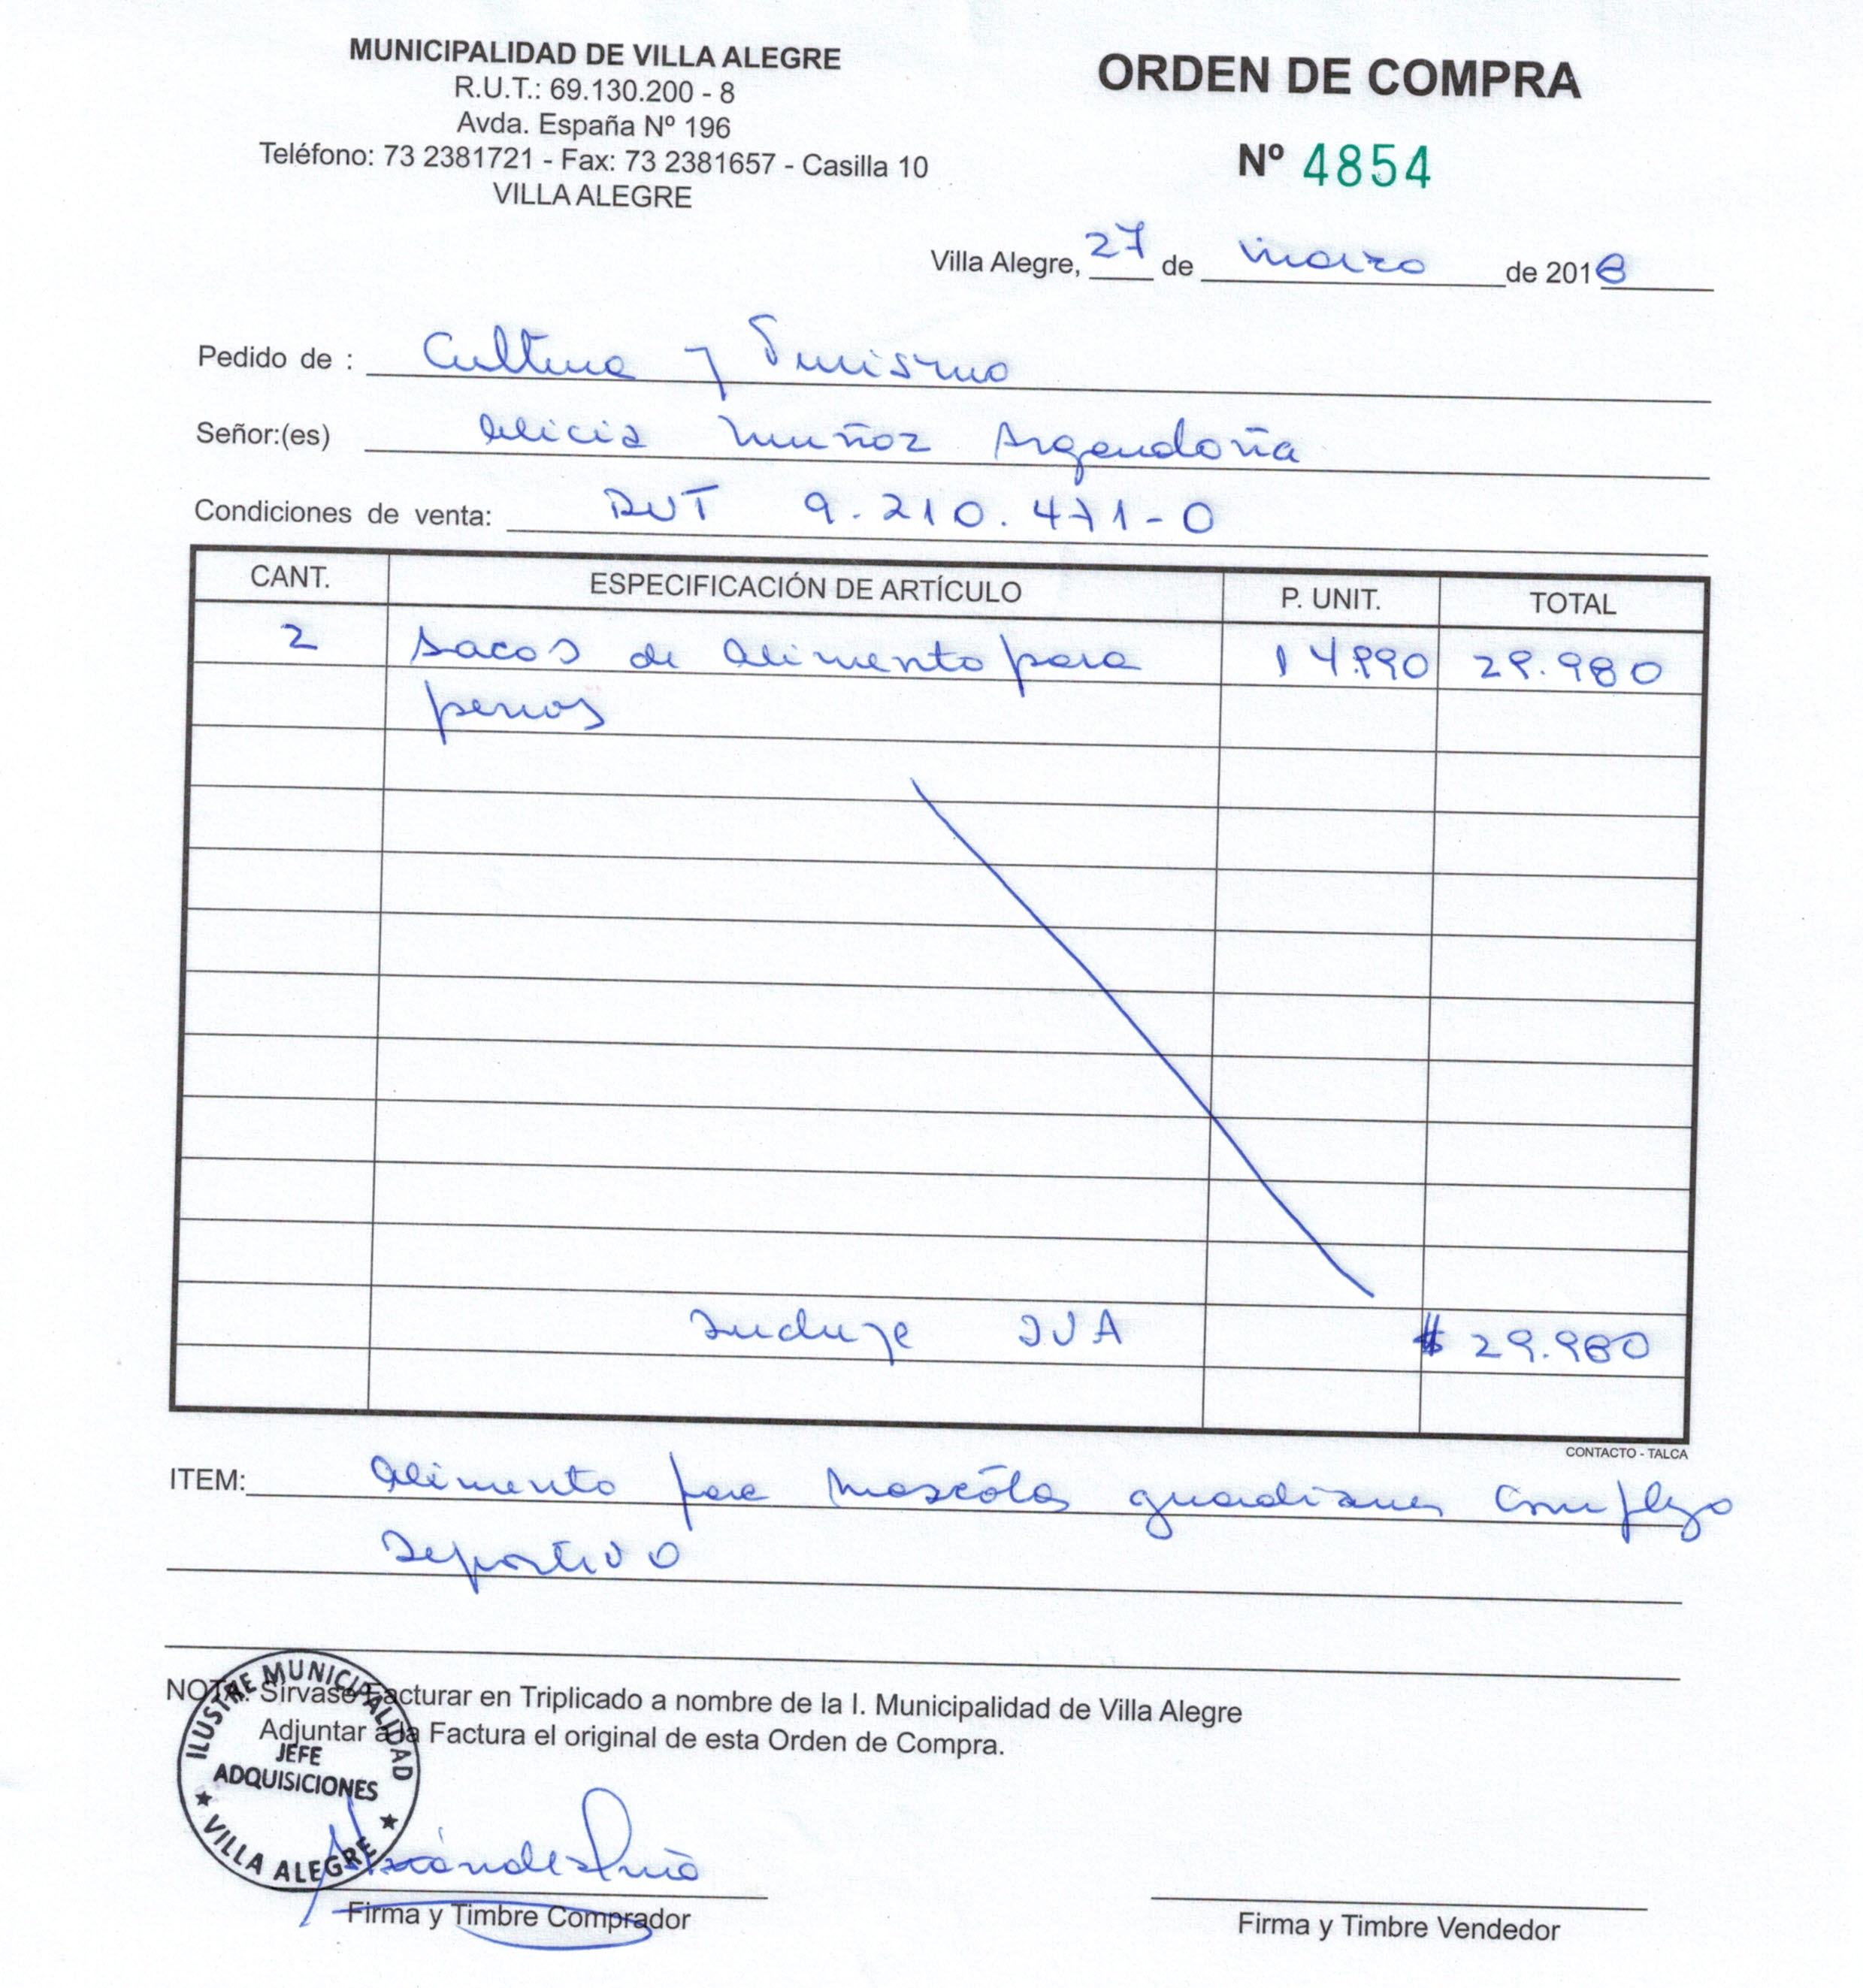 MUNICIPALIDAD DE VILLA ALEGRE
R.U.T.: 69.130.200 - 8
Avda. España Nº 196
Teléfono: 73 2381721 - Fax: 73 2381657 - Casilla 10
VILLA ALEGRE
ORDEN DE COMPRA
Nº 4854
Villa Alegre, 27 de marzo de 2018
Pedido de : Cultura y Turismo
Señor:(es) Alicia Muñoz Argandoña
Condiciones de venta: RUT 9.210.471-0
CANT. ESPECIFICACIÓN DE ARTÍCULO P. UNIT. TOTAL
2 Sacos de alimento para 14.990 29.980
perros
Incluye IVA $ 29.980
CONTACTO - TALCA
ITEM: Alimento para mascotas guardianes Complejo
Deportivo
NOTA: Sírvase Facturar en Triplicado a nombre de la I. Municipalidad de Villa Alegre
Adjuntar a la Factura el original de esta Orden de Compra.
ILUSTRE MUNICIPALIDAD
JEFE
ADQUISICIONES
★ VILLA ALEGRE ★
Firma y Timbre Comprador
Firma y Timbre Vendedor